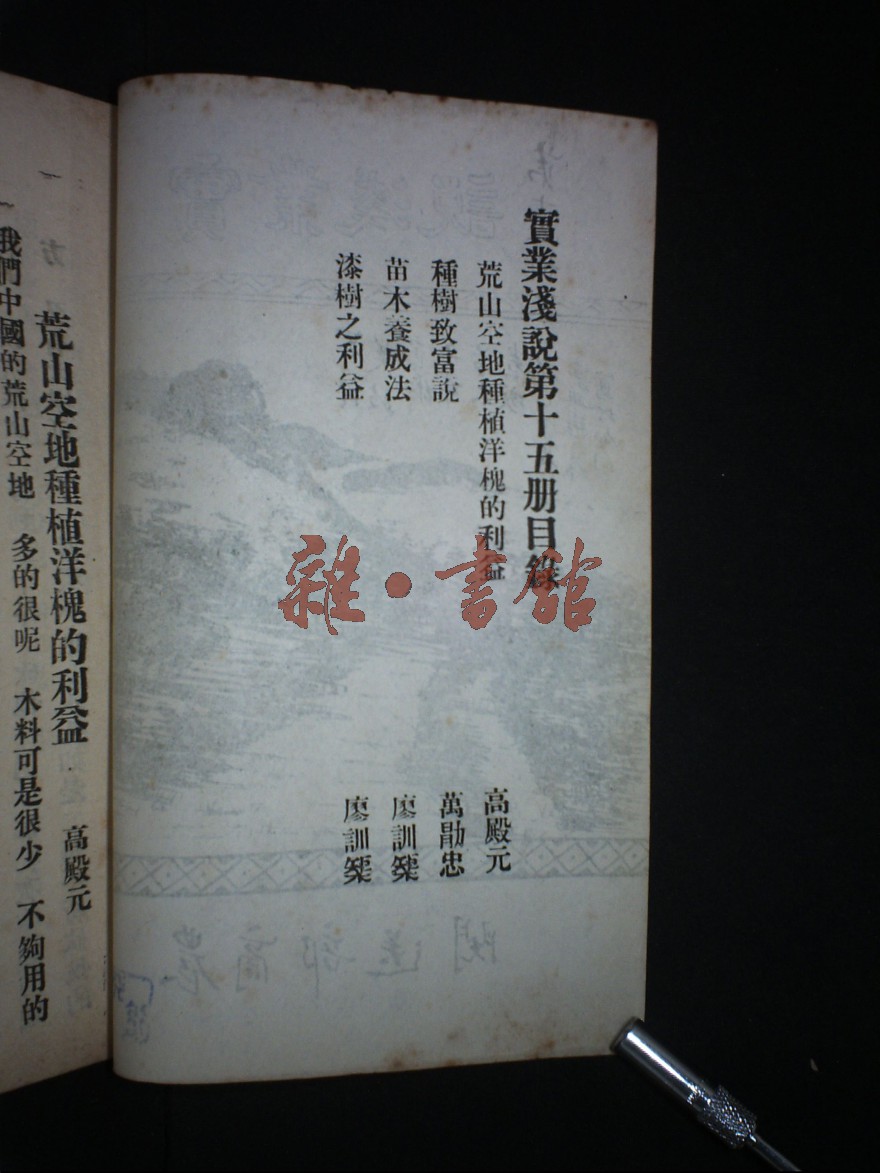 實業淺說第十五册目錄
荒山空地種植洋槐的利益 高殿元
種樹致富說 萬勛忠
苗木養成法 廖訓榘
漆樹之利益 廖訓榘
雜·書館
荒山空地種植洋槐的利益 高殿元
我們中國的荒山空地 多的很呢 木料可是很少 不夠用的